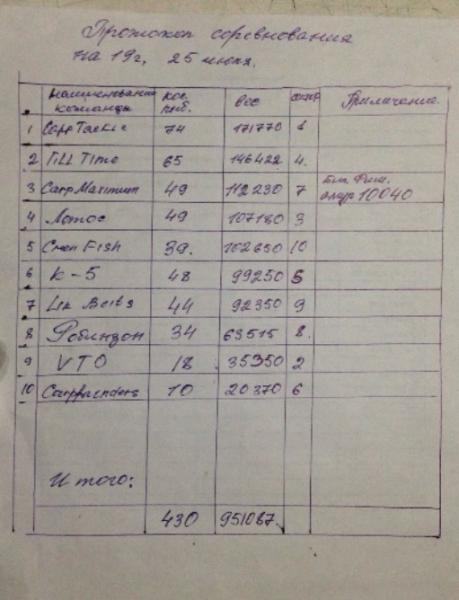 Протокол соревнования
на 19г, 25 июля.
наименование команды кол. рыб. вес сектор Примечание
1 CarpTackle 74 171770 1
2 Till Time 65 146422 4
3 CarpMaximum 49 112230 7 Биг Фиш. амур 10040
4 Лотос 49 107180 3
5 Fish 39. 102650 10
6 К-5 48 99250 5
7 Baits 44 92350 9
8 Робинзон 34 63515 8.
9 VTO 18 35350 2
10 10 20370 6
Итого:
430 951087.